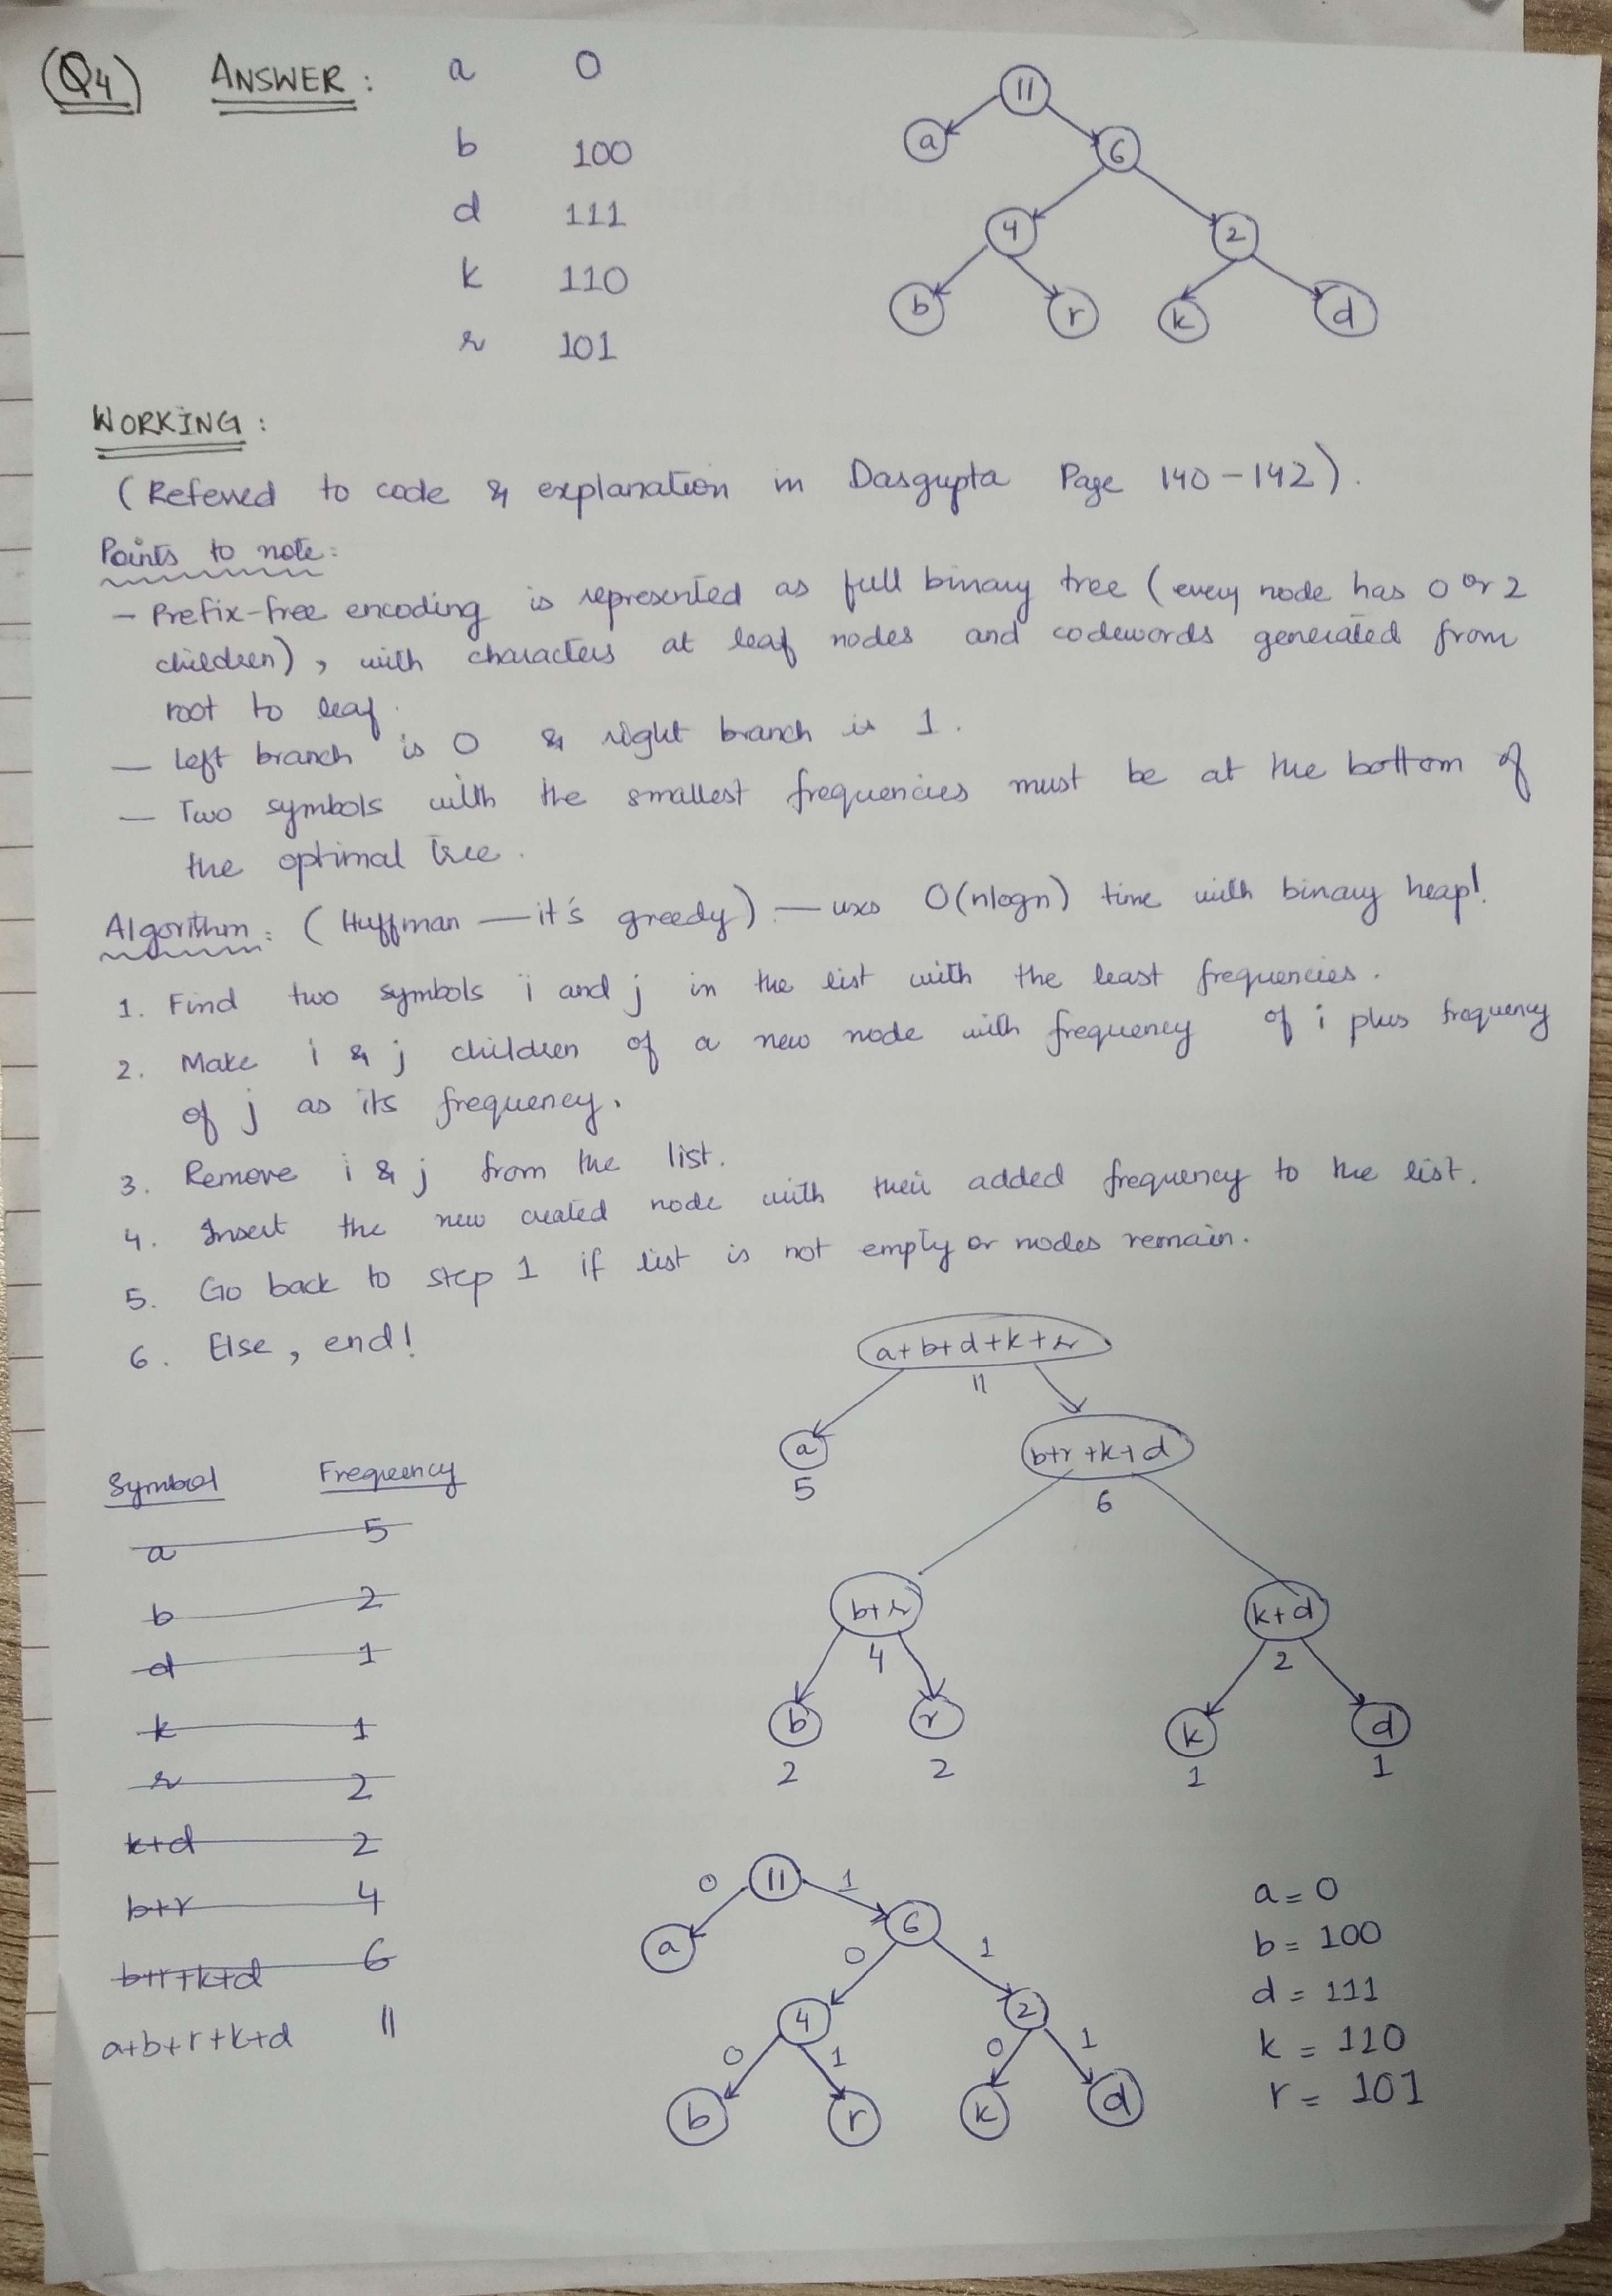 (Q4) ANSWER : a 0
b 100
d 111
k 110
r 101
11
a 6
4 2
b r k d
WORKING :
(Referred to code & explanation in Dasgupta Page 140-142).
Points to note:
- Prefix-free encoding is represented as full binary tree (every node has 0 or 2
children), with characters at leaf nodes and codewords generated from
root to leaf.
- Left branch is 0 & right branch is 1.
- Two symbols with the smallest frequencies must be at the bottom of
the optimal tree.
Algorithm: (Huffman - it's greedy) - uses O(nlogn) time with binary heap!
1. Find two symbols i and j in the list with the least frequencies.
2. Make i & j children of a new node with frequency of i plus frequency
of j as its frequency.
3. Remove i & j from the list.
4. Insert the new created node with their added frequency to the list.
5. Go back to step 1 if list is not empty or nodes remain.
6. Else, end!
Symbol Frequency
a 5
b 2
d 1
k 1
r 2
k+d 2
b+r 4
b+r+k+d 6
a+b+r+k+d 11
a+b+d+k+r
11
a b+r+k+d
5 6
b+r k+d
4 2
b r k d
2 2 1 1
11
0 1
a 6
0 1
4 2
0 1 0 1
b r k d
a = 0
b = 100
d = 111
k = 110
r = 101